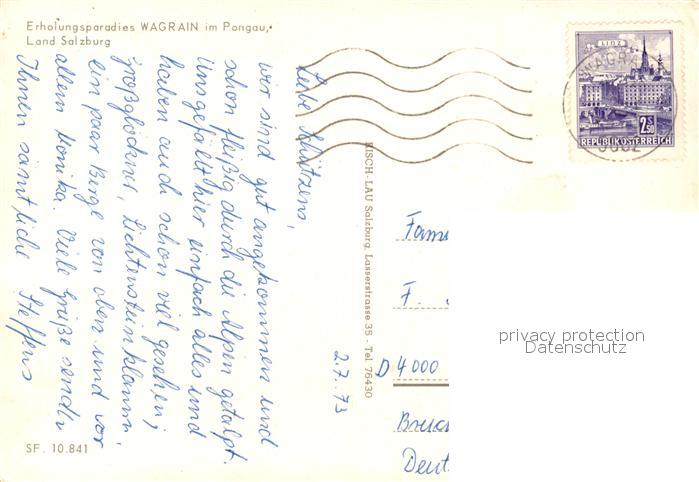 Erholungsparadies WAGRAIN im Pongau,
Land Salzburg
Liebe
wir sind gut angekommen und
schon fleißig durch die Alpen getalpt.
Uns gefällt hier einfach alles und
haben auch schon viel gesehen;
Großglockner, Lichtensteinklamm,
ein paar Berge von oben und vor
allem Monika. Viele Grüße senden
Ihnen sämtliche Steffens
2.7.73
SF. 10.841
RISCH-LAU Salzburg, Lasserstrasse 35 - Tel. 76430
LINZ
2.50
S
REPUBLIK ÖSTERREICH
WAGRAIN
Fam
F.
D 4000
Deut
privacy protection
Datenschutz